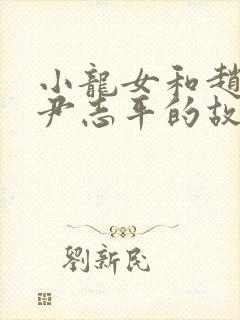 小龍女和趙
尹志平的故
劉新民